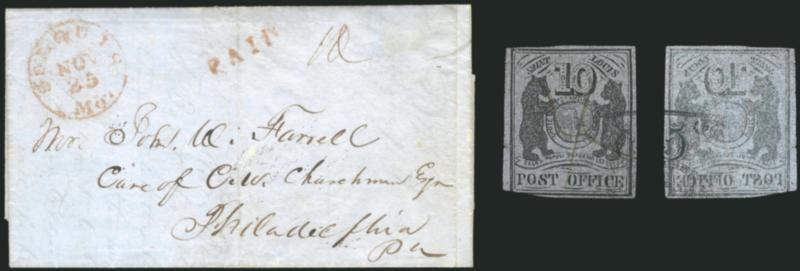 ST. LOUIS
NOV
25
Mo.
PAID
10
Mr. John W. Farrell
Care of C.W. Churchman Esqr
Philadelphia
Pa
SAINT LOUIS
10
POST OFFICE
SAINT LOUIS
10
5
POST OFFICE